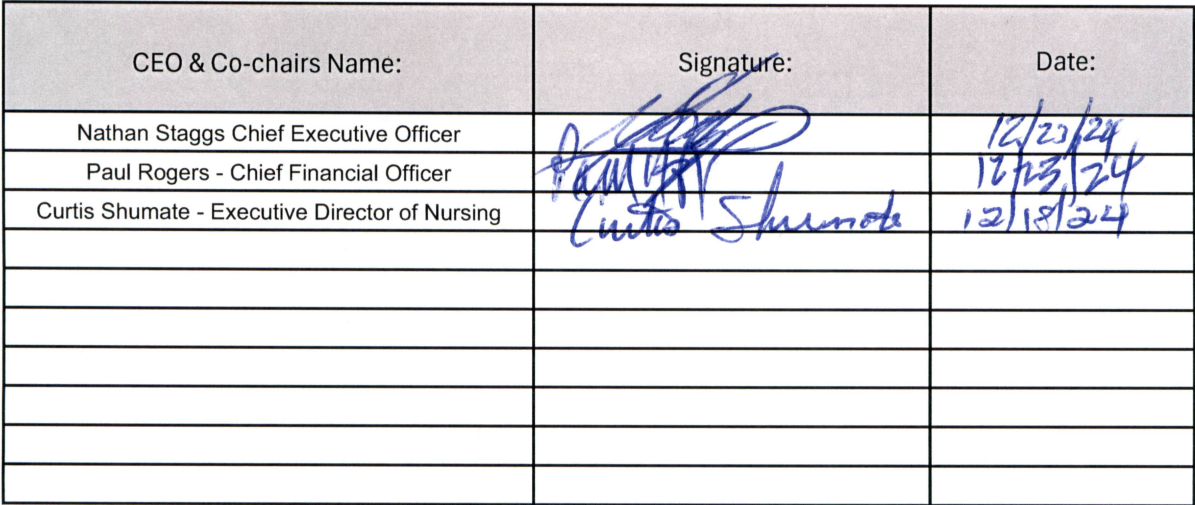 CEO & Co-chairs Name: Signature: Date:
Nathan Staggs Chief Executive Officer 12/23/24
Paul Rogers - Chief Financial Officer Paul 12/23/24
Curtis Shumate - Executive Director of Nursing Curtis Shumate 12/18/24